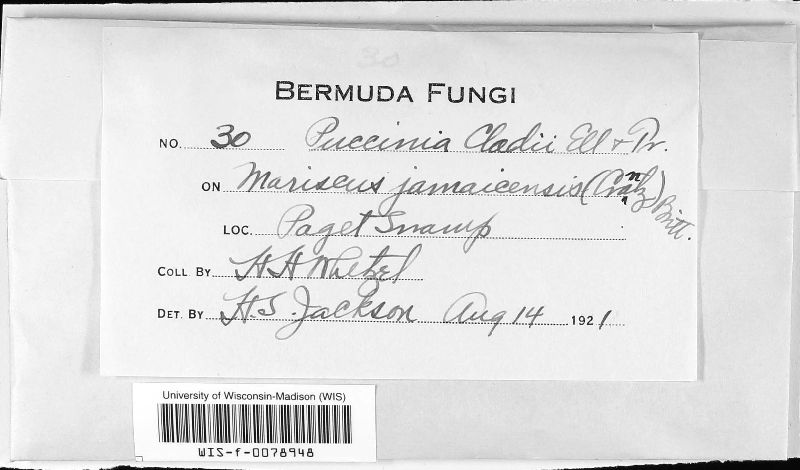 30
BERMUDA FUNGI
NO. 30 Puccinia Cladii Ell & Tr.
ON Mariscus jamaicensis (Crantz) Britt.
LOC. Paget Swamp
COLL. BY H H Whetzel
DET. BY H.S. Jackson Aug 14 1921
University of Wisconsin-Madison (WIS)
WIS-f-0078948